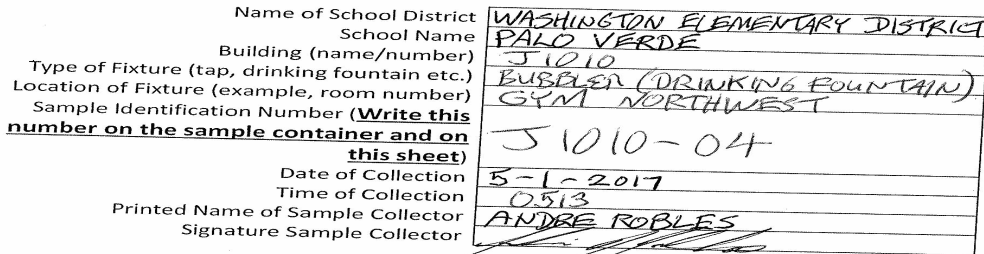 Name of School District WASHINGTON ELEMENTARY DISTRICT
School Name PALO VERDE
Building (name/number) J1010
Type of Fixture (tap, drinking fountain etc.) BUBBLER (DRINKING FOUNTAIN)
Location of Fixture (example, room number) GYM NORTHWEST
Sample Identification Number (Write this
number on the sample container and on
this sheet) J1010-04
Date of Collection 5-1-2017
Time of Collection 0513
Printed Name of Sample Collector ANDRE ROBLES
Signature Sample Collector